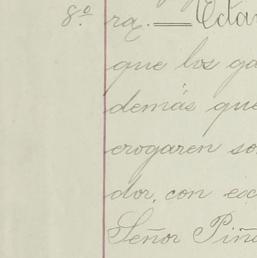 8.º ra. = Esta
que los ga
demás que
erogaren so
dor, con ex
Señor Piñ